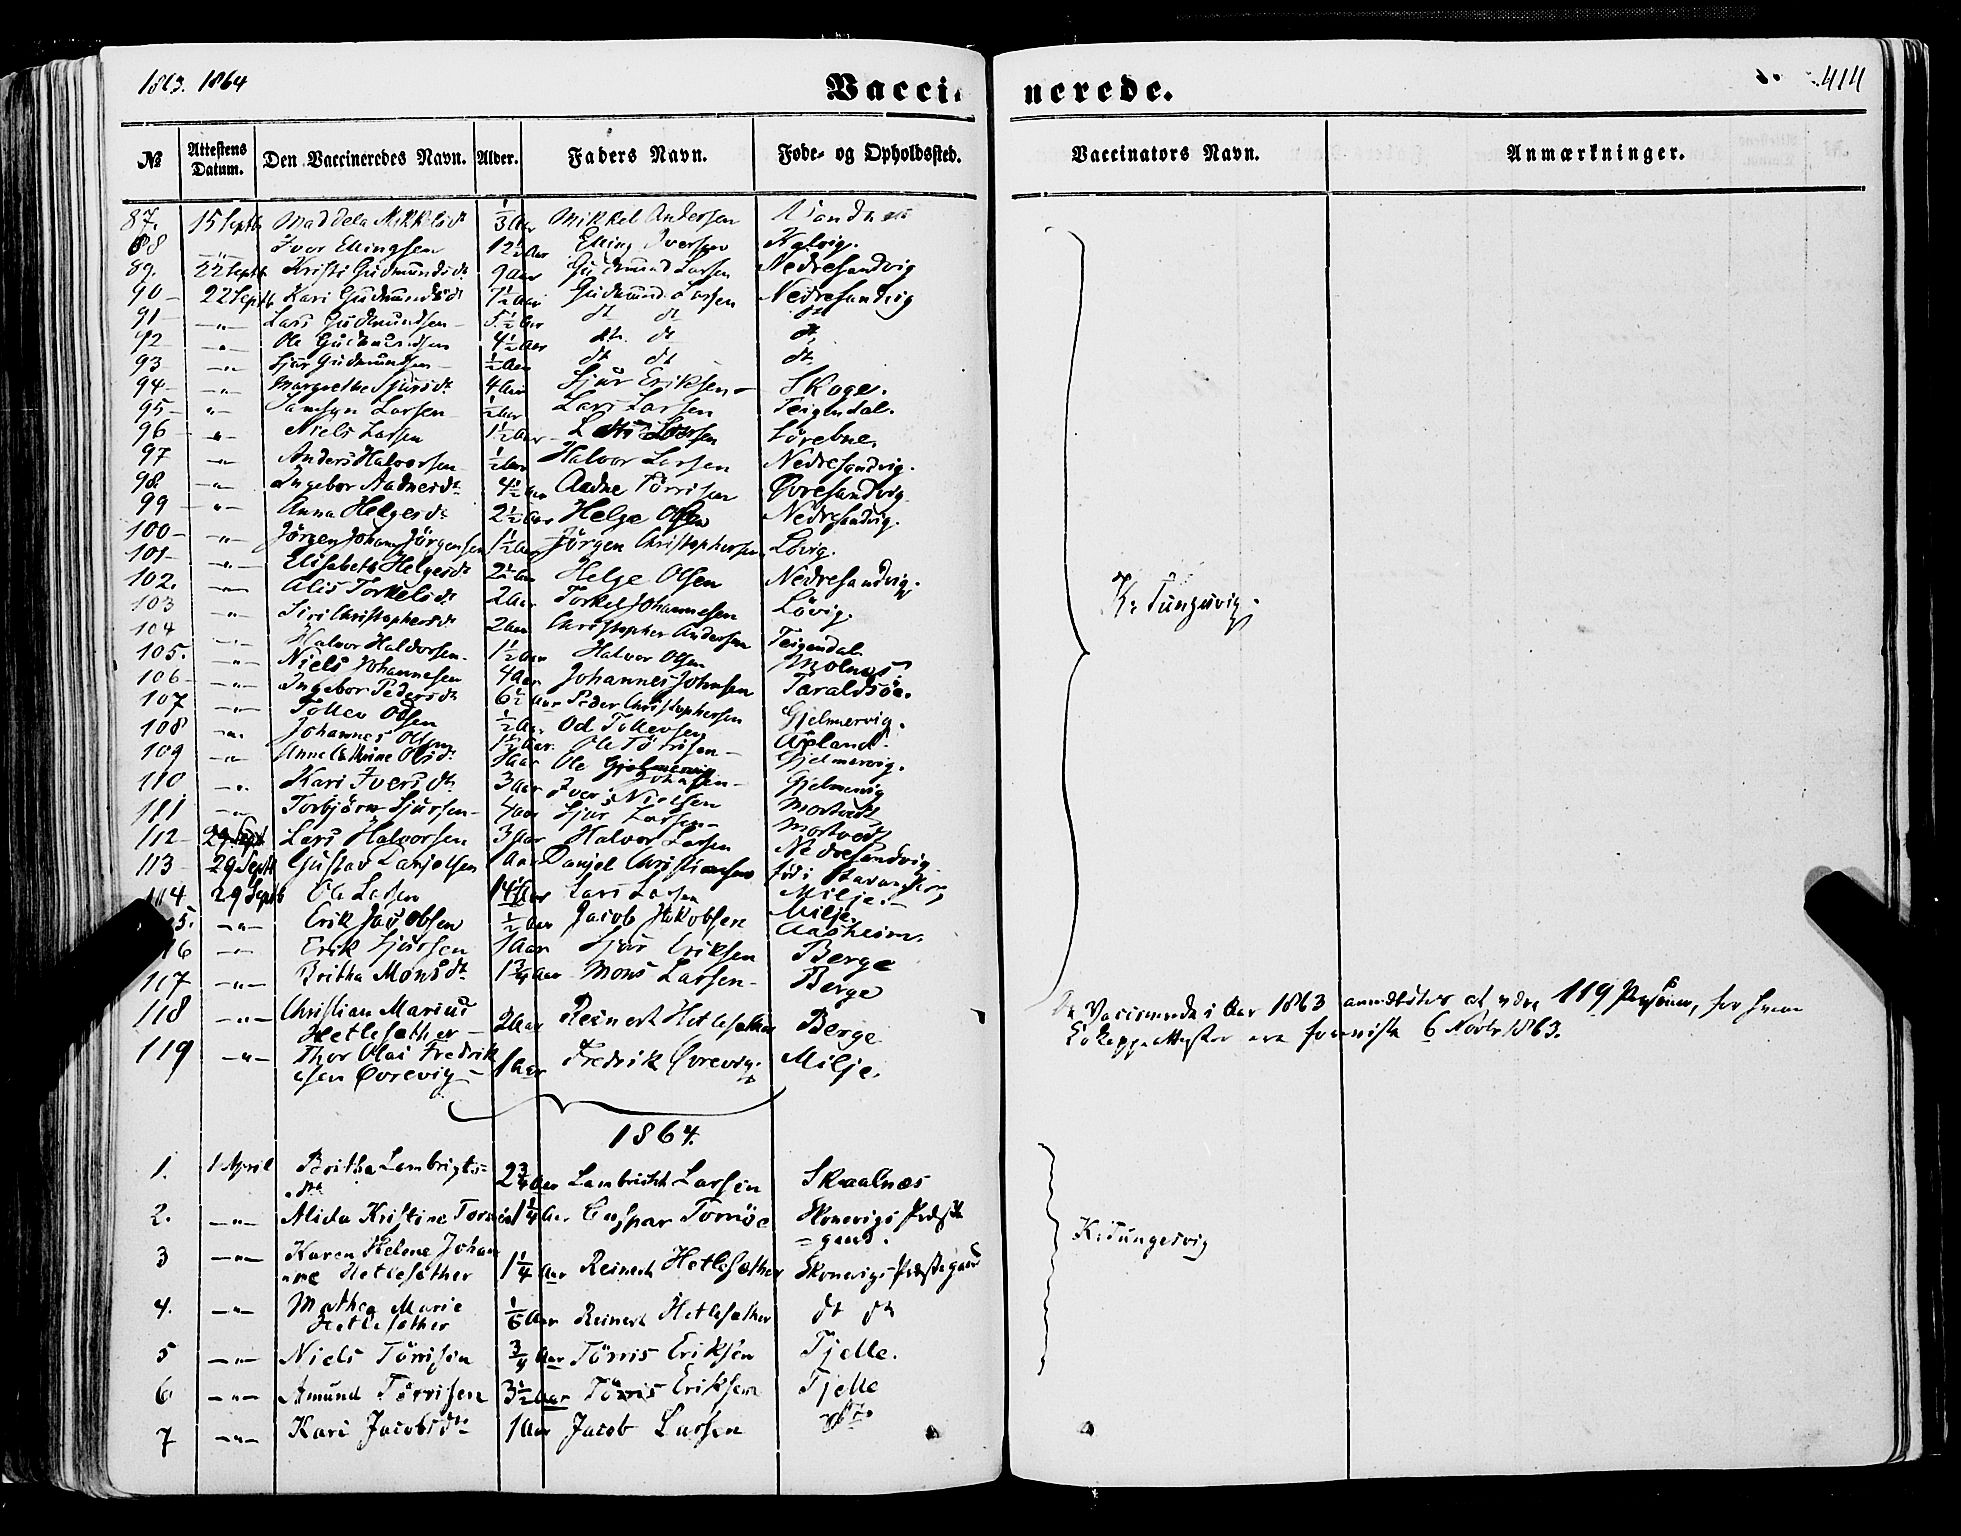 1863. 1864
Vaccinerede.
414
No Attestens Datum. Den Vaccineredes Navn. Alder. Faders Navn. Føde- og Opholdssted. Vaccinators Navn. Anmærkninger.
87. 15 Septb Mikkel Andersen
88 -"- Iver Ellingsen 12½ Aar Elling Iversen Kalvig.
89. 22 Septb Kristi Gudmundsdt 9 Aar Gudmund Larsen Nedresandvig
90 22 Septb Kari Gudmundsdt 7½ Aar Gudmund Larsen Nedresandvig
91 -"- Lars Gudmundsen 5½ Aar dt dt dt
92 -"- Ole Gudmundsen 4½ Aar dt dt dt
93 -"- Sjur Gudmundsen ½ Aar dt dt dt
94 -"- Margrethe Sjursdt 4 Aar Sjur Eriksen Skoge.
95 -"- Samsyn Larsen ½ Aar Lars Larsen Teigendal.
96 -"- Niels Larsen 1½ Aar Larsen Sørebne.
97 -"- Anders Halvorsen ½ Aar Halvor Larsen Nedresandvig.
98 -"- Ingebor Aadnesdt 4½ Aar Aadne Tørrisen Øvresandvig
99 -"- Anna Helgesdt 2½ Aar Helge Olsen Nedresandvig.
100 -"- Jørgen Johan Jörgensen 1½ Aar Jørgen Christophersen Løvig.
101 -"- Elisabeth Helgesdt 2½ Aar Helge Olsen Nedresandvig.
102. -"- Alis Torkelsdt 2 Aar Torkel Johannesen Løvig.
103 -"- Siri Christophersdt 2 Aar Christopher Andersen Teigendal
104 -"- Halvor Haldorsen 1½ Aar Halvor Olsen Molnes
105. -"- Niels Johannesen 4 Aar Johannes Johnsen Taraldsøe.
106 -"- Ingebor Pedersdt 6½ Aar Peder Christophersen Gjelmervig.
107 -"- Tollev Odsen ½ Aar Od Tollevsen
108 -"- Johannes Olsen 1½ Aar Ole Tørrisen Gjelmervig.
109 -"- Anne Cathrine Olsdt Aar Ole Johnsen Gjelmervig
110 -"- Kari Iversdt 3 Aar Iver Nielsen Mortvedt
111 -"- Torbjørn Sjursen 4 Aar Sjur Larsen Mortvedt
112 29 Sept Lars Halvorsen 3 Aar Halvor Larsen Nedresandvig
113 29 Septb Gustav Danjelsen 1 Aar Danjel Christiansen
114. 29 Septb Ole Larsen Aar Lars Larsen Milje.
5. -"- Erik Jacobsen ½ Aar Jacob Jakobsen Milje.
16 -"- Erik Sjursen 1 Aar Sjur Eriksen Aasheim.
117 -"- Britha Monsdt 1¾ Aar Mons Larsen Berge
118 -"- Christian Marius Hetlesæther 2 Aar Reinert Hetlesæther Berge
119 -"- Thor Olai Fredriksen Øvrevig 1 Aar Fredrik Øvrevig. Milje.
K. Tungesvig.
Vaccinerede i Aar 1863 at være 119 Personer, for hvem
6 Novbr 1863.
1864.
1. 1 April Britha Lambrigtsdtr 2¾ Aar Lambricht Larsen Skaalnæs
2. -"- Alida Kristine Tornöe 1¼ Aar Caspar Tornöe Skonevigs Præstegaard.
3 -"- Karen Helene Johanne Hetlesæther 1¼ Aar Reinert Hetlesæther Skonevigs Præstegaard
4. -"- Mathea Marie Hetlesæther Aar Reinert Hetlesæther dt dt
5 -"- Niels Tørrisen ¾ Aar Tørris Eriksen Tjelle.
6 -"- Amund Tørrisen 3½ Aar Tørris Eriksen Tjelle
7 -"- Kari Jacobsdtr 1 Aar Jacob Larsen
K. Tungesvig